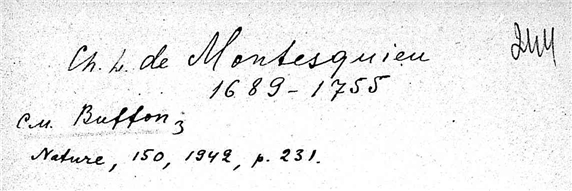 Ch. L. de Montesquieu 244
1689-1755
См. Buffon;
Nature, 150, 1942, p. 231.